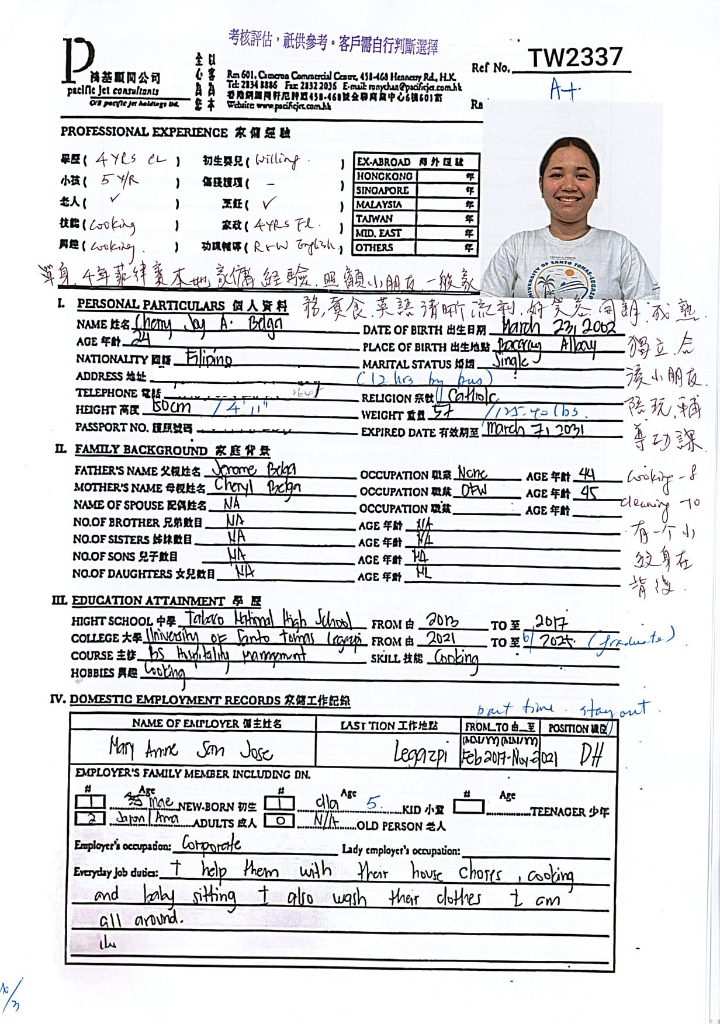 考核評估，祇供參考。客戶需自行判斷選擇
P 鴻基顧問公司
pacific jet consultants
O/B pacific jet holdings ltd.
全心為您 以客為本
Rm 601, Cameron Commercial Centre, 458-468 Hennessy Rd., H.K.
Tel: 2834 8886 Fax: 2832 2036 E-mail: ronychan@pacificjet.com.hk
香港銅鑼灣軒尼詩道458-468號金聯商業中心6樓601室
Website: www.pacificjet.com.hk
Ref No. TW2337
Ra
A+
PROFESSIONAL EXPERIENCE 家傭經驗
學歷 ( 4 YRS CL ) 初生嬰兒 ( Willing. )
小孩 ( 5 Y/R ) 傷殘護理 ( - )
老人 ( ✓ ) 烹飪 ( ✓ )
技能 ( Cooking ) 家政 ( 4YRS FL. )
興趣 ( Cooking. ) 功課輔導 ( R+W English, )
EX-ABROAD 海外經驗
HONGKONG 年
SINGAPORE 年
MALAYSIA 年
TAIWAN 年
MID. EAST 年
OTHERS 年
UNIVERSITY OF SANTO TOMAS-LEGAZPI
單身, 4年菲律賓本地家傭經驗. 照顧小朋友, 一般家
務, 煮食. 英語清晰流利, 好笑容. 開朗, 成熟
獨立. 合
湊小朋友.
陪玩, 輔
導功課.
I. PERSONAL PARTICULARS 個人資料
NAME 姓名 Cherry Joy A. Belga DATE OF BIRTH 出生日期 March 23, 2002
AGE 年齡 24 PLACE OF BIRTH 出生地點 Bacacay Albay
NATIONALITY 國籍 Filipino MARITAL STATUS 婚姻 Single
ADDRESS 地址 (12 hrs by bus)
TELEPHONE 電話 RELIGION 宗教 Catholic
HEIGHT 高度 150cm / 4'11" WEIGHT 重量 57 / 125.40 lbs.
PASSPORT NO. 護照號碼 EXPIRED DATE 有效期至 March 7, 2031
II. FAMILY BACKGROUND 家庭背景
FATHER'S NAME 父親姓名 Jerome Belga OCCUPATION 職業 None AGE 年齡 44
MOTHER'S NAME 母親姓名 Cheryl Belga OCCUPATION 職業 OFW AGE 年齡 45
NAME OF SPOUSE 配偶姓名 NA OCCUPATION 職業 AGE 年齡
NO.OF BROTHER 兄弟數目 NA AGE 年齡 NA
NO.OF SISTERS 姊妹數目 NA AGE 年齡 NA
NO.OF SONS 兒子數目 NA AGE 年齡 NA
NO.OF DAUGHTERS 女兒數目 NA AGE 年齡 NA
cooking - 8
cleaning - 10
有一个小
紋身在
背後.
III. EDUCATION ATTAINMENT 學歷
HIGHT SCHOOL 中學 Tabaco National High School FROM 由 2013 TO 至 2017
COLLEGE 大學 University of Santo Tomas Legazpi FROM 由 2021 TO 至 6/ 2025 (graduate)
COURSE 主修 BS Hospitality management SKILL 技能 Cooking
HOBBIES 興趣 Cooking
IV. DOMESTIC EMPLOYMENT RECORDS 家傭工作記錄
part time. stay out.
NAME OF EMPLOYER 僱主姓名 LAST TION 工作地點 FROM_TO 由_至 (MM/YY) (MM/YY) POSITION 職位
Mary Anne San Jose Legazpi Feb 2017-Nov-2021 DH
EMPLOYER'S FAMILY MEMBER INCLUDING DN.
# Age # Age # Age
1 Mae NEW-BORN 初生 1 ella 5. KID 小童 TEENAGER 少年
2 Jason/Anna ADULTS 成人 0 N/A OLD PERSON 老人
Employer's occupation: Corporate Lady employer's occupation:
Everyday job duties: I help them with their house chores, cooking
and baby sitting I also wash their clothes I am
all around.